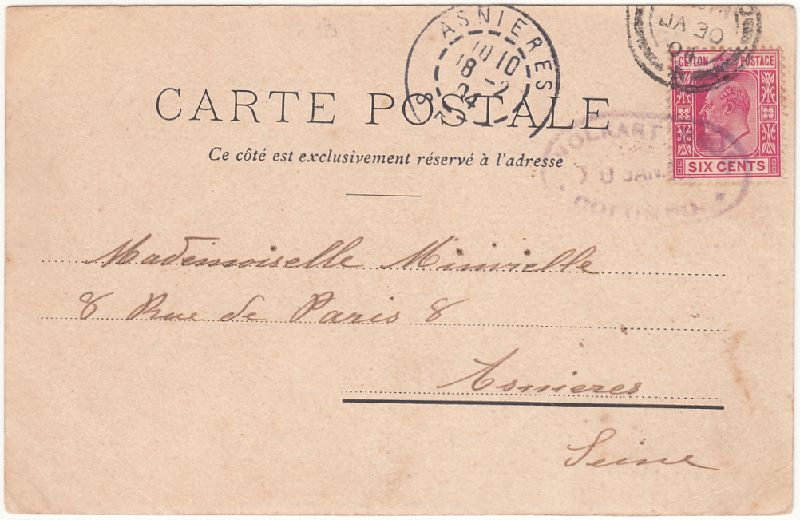 ASNIERES
10 10
18 -2
04
JA 30
04
CEYLON POSTAGE
SIX CENTS
CARTE POSTALE
Ce côté est exclusivement réservé à l'adresse
JAN.
COLOMBO
Mademoiselle Minvielle
8 Rue de Paris 8
Asnieres
Seine